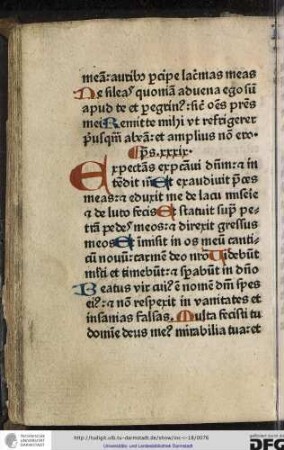 meā: auribꝰ ꝑcipe lac̄mas meas
Ne sileaˢ quoniā aduena ego sū
apud te et pegrinꝰ: sic̄ oēs pr̄es
mei Remitte mihi vt refrigerer
pꝰusqm̄ abeā: et ampliꝰ nō ero.
Ps. xxxix.
Expectās expc̄aui dn̄m: ⁊ in
tēdit m̄ Et exaudiuit p̄ces
meas: ⁊ eduxit me de lacu mis̄ie
⁊ de luto fecis Et statuit sup̄ pe
trā pedeˢ meos: ⁊ direxit gressus
meos Et inmisit in os meū cantic
cū nouū: carmē deo nr̄o Videbūt
ml̄ti ⁊ timebūt: ⁊ sꝑabūt in dn̄o
Beatus vir cuiꝰ ē nomē dn̄i spes
eiꝰ: ⁊ nō resꝑexit in vanitates et
insanias falsas. Multa fecisti tu
domine deus meꝰ mirabilia tua: et
http://tudigit.ulb.tu-darmstadt.de/show/inc-i-18/0076
Universitäts- und Landesbibliothek Darmstadt